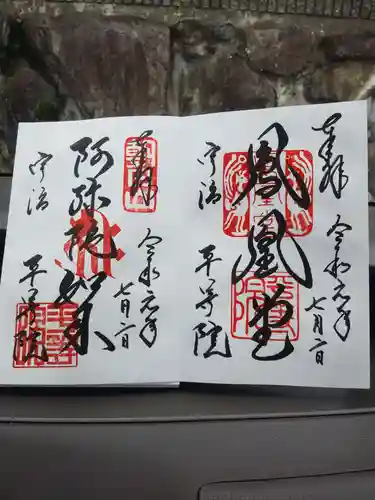 奉拝
令和元年七月六日
鳳凰堂
宇治
平等院
奉拝
令和元年七月六日
阿弥陀如来
宇治
平等院